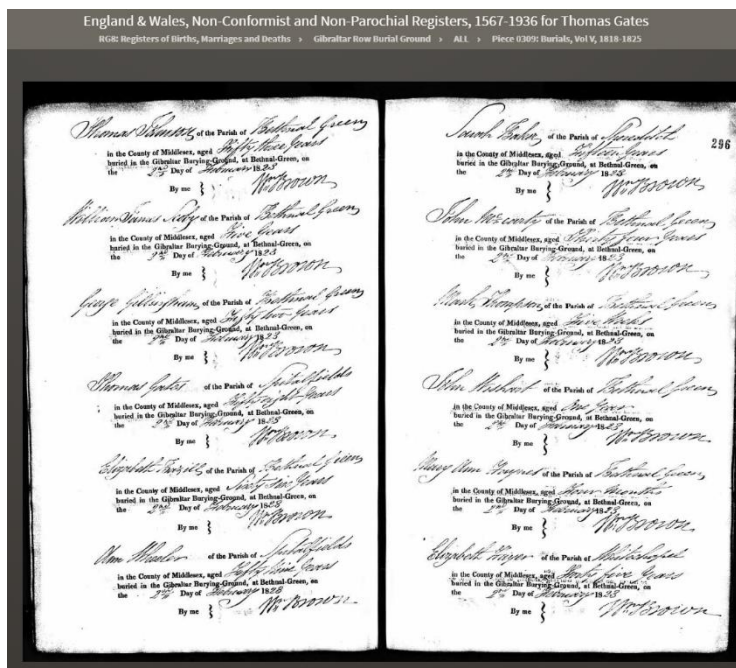 England & Wales, Non-Conformist and Non-Parochial Registers, 1567-1936 for Thomas Gates
RG8: Registers of Births, Marriages and Deaths › Gibraltar Row Burial Ground › ALL › Piece 0309: Burials, Vol V, 1818-1825
Thomas of the Parish of Bethnal Green
in the County of Middlesex, aged Fifty three Years
buried in the Gibraltar Burying-Ground, at Bethnal-Green, on
the 2nd Day of February 1823
By me } Wm Brown
William James of the Parish of Bethnal Green
in the County of Middlesex, aged Five Years
buried in the Gibraltar Burying-Ground, at Bethnal-Green, on
the 2nd Day of February 1823
By me } Wm Brown
George Gillingham of the Parish of Bethnal Green
in the County of Middlesex, aged Fifty two Years
buried in the Gibraltar Burying-Ground, at Bethnal-Green, on
the 2nd Day of February 1823
By me } Wm Brown
Thomas Gates of the Parish of Spitalfields
in the County of Middlesex, aged Fifty eight Years
buried in the Gibraltar Burying-Ground, at Bethnal-Green, on
the 2nd Day of February 1823
By me } Wm Brown
Elizabeth of the Parish of Bethnal Green
in the County of Middlesex, aged Sixty Six Years
buried in the Gibraltar Burying-Ground, at Bethnal-Green, on
the 2nd Day of February 1823
By me } Wm Brown
Ann Wheeler of the Parish of Spitalfields
in the County of Middlesex, aged Fifty Nine Years
buried in the Gibraltar Burying-Ground, at Bethnal-Green, on
the 2nd Day of February 1823
By me } Wm Brown
296
Sarah of the Parish of Shoreditch
in the County of Middlesex, aged Fifteen Years
buried in the Gibraltar Burying-Ground, at Bethnal-Green, on
the 2nd Day of February 1823
By me } Wm Brown
John of the Parish of Bethnal Green
in the County of Middlesex, aged Thirty four Years
buried in the Gibraltar Burying-Ground, at Bethnal-Green, on
the 2nd Day of February 1823
By me } Wm Brown
Thompson of the Parish of Bethnal Green
in the County of Middlesex, aged Five Weeks
buried in the Gibraltar Burying-Ground, at Bethnal-Green, on
the 2nd Day of February 1823
By me } Wm Brown
John of the Parish of Bethnal Green
in the County of Middlesex, aged One Year
buried in the Gibraltar Burying-Ground, at Bethnal-Green, on
the 2nd Day of February 1823
By me } Wm Brown
Mary Ann Haynes of the Parish of Bethnal Green
in the County of Middlesex, aged Four Months
buried in the Gibraltar Burying-Ground, at Bethnal-Green, on
the 2nd Day of February 1823
By me } Wm Brown
Elizabeth of the Parish of Whitechapel
in the County of Middlesex, aged Forty five Years
buried in the Gibraltar Burying-Ground, at Bethnal-Green, on
the 2nd Day of February 1823
By me } Wm Brown